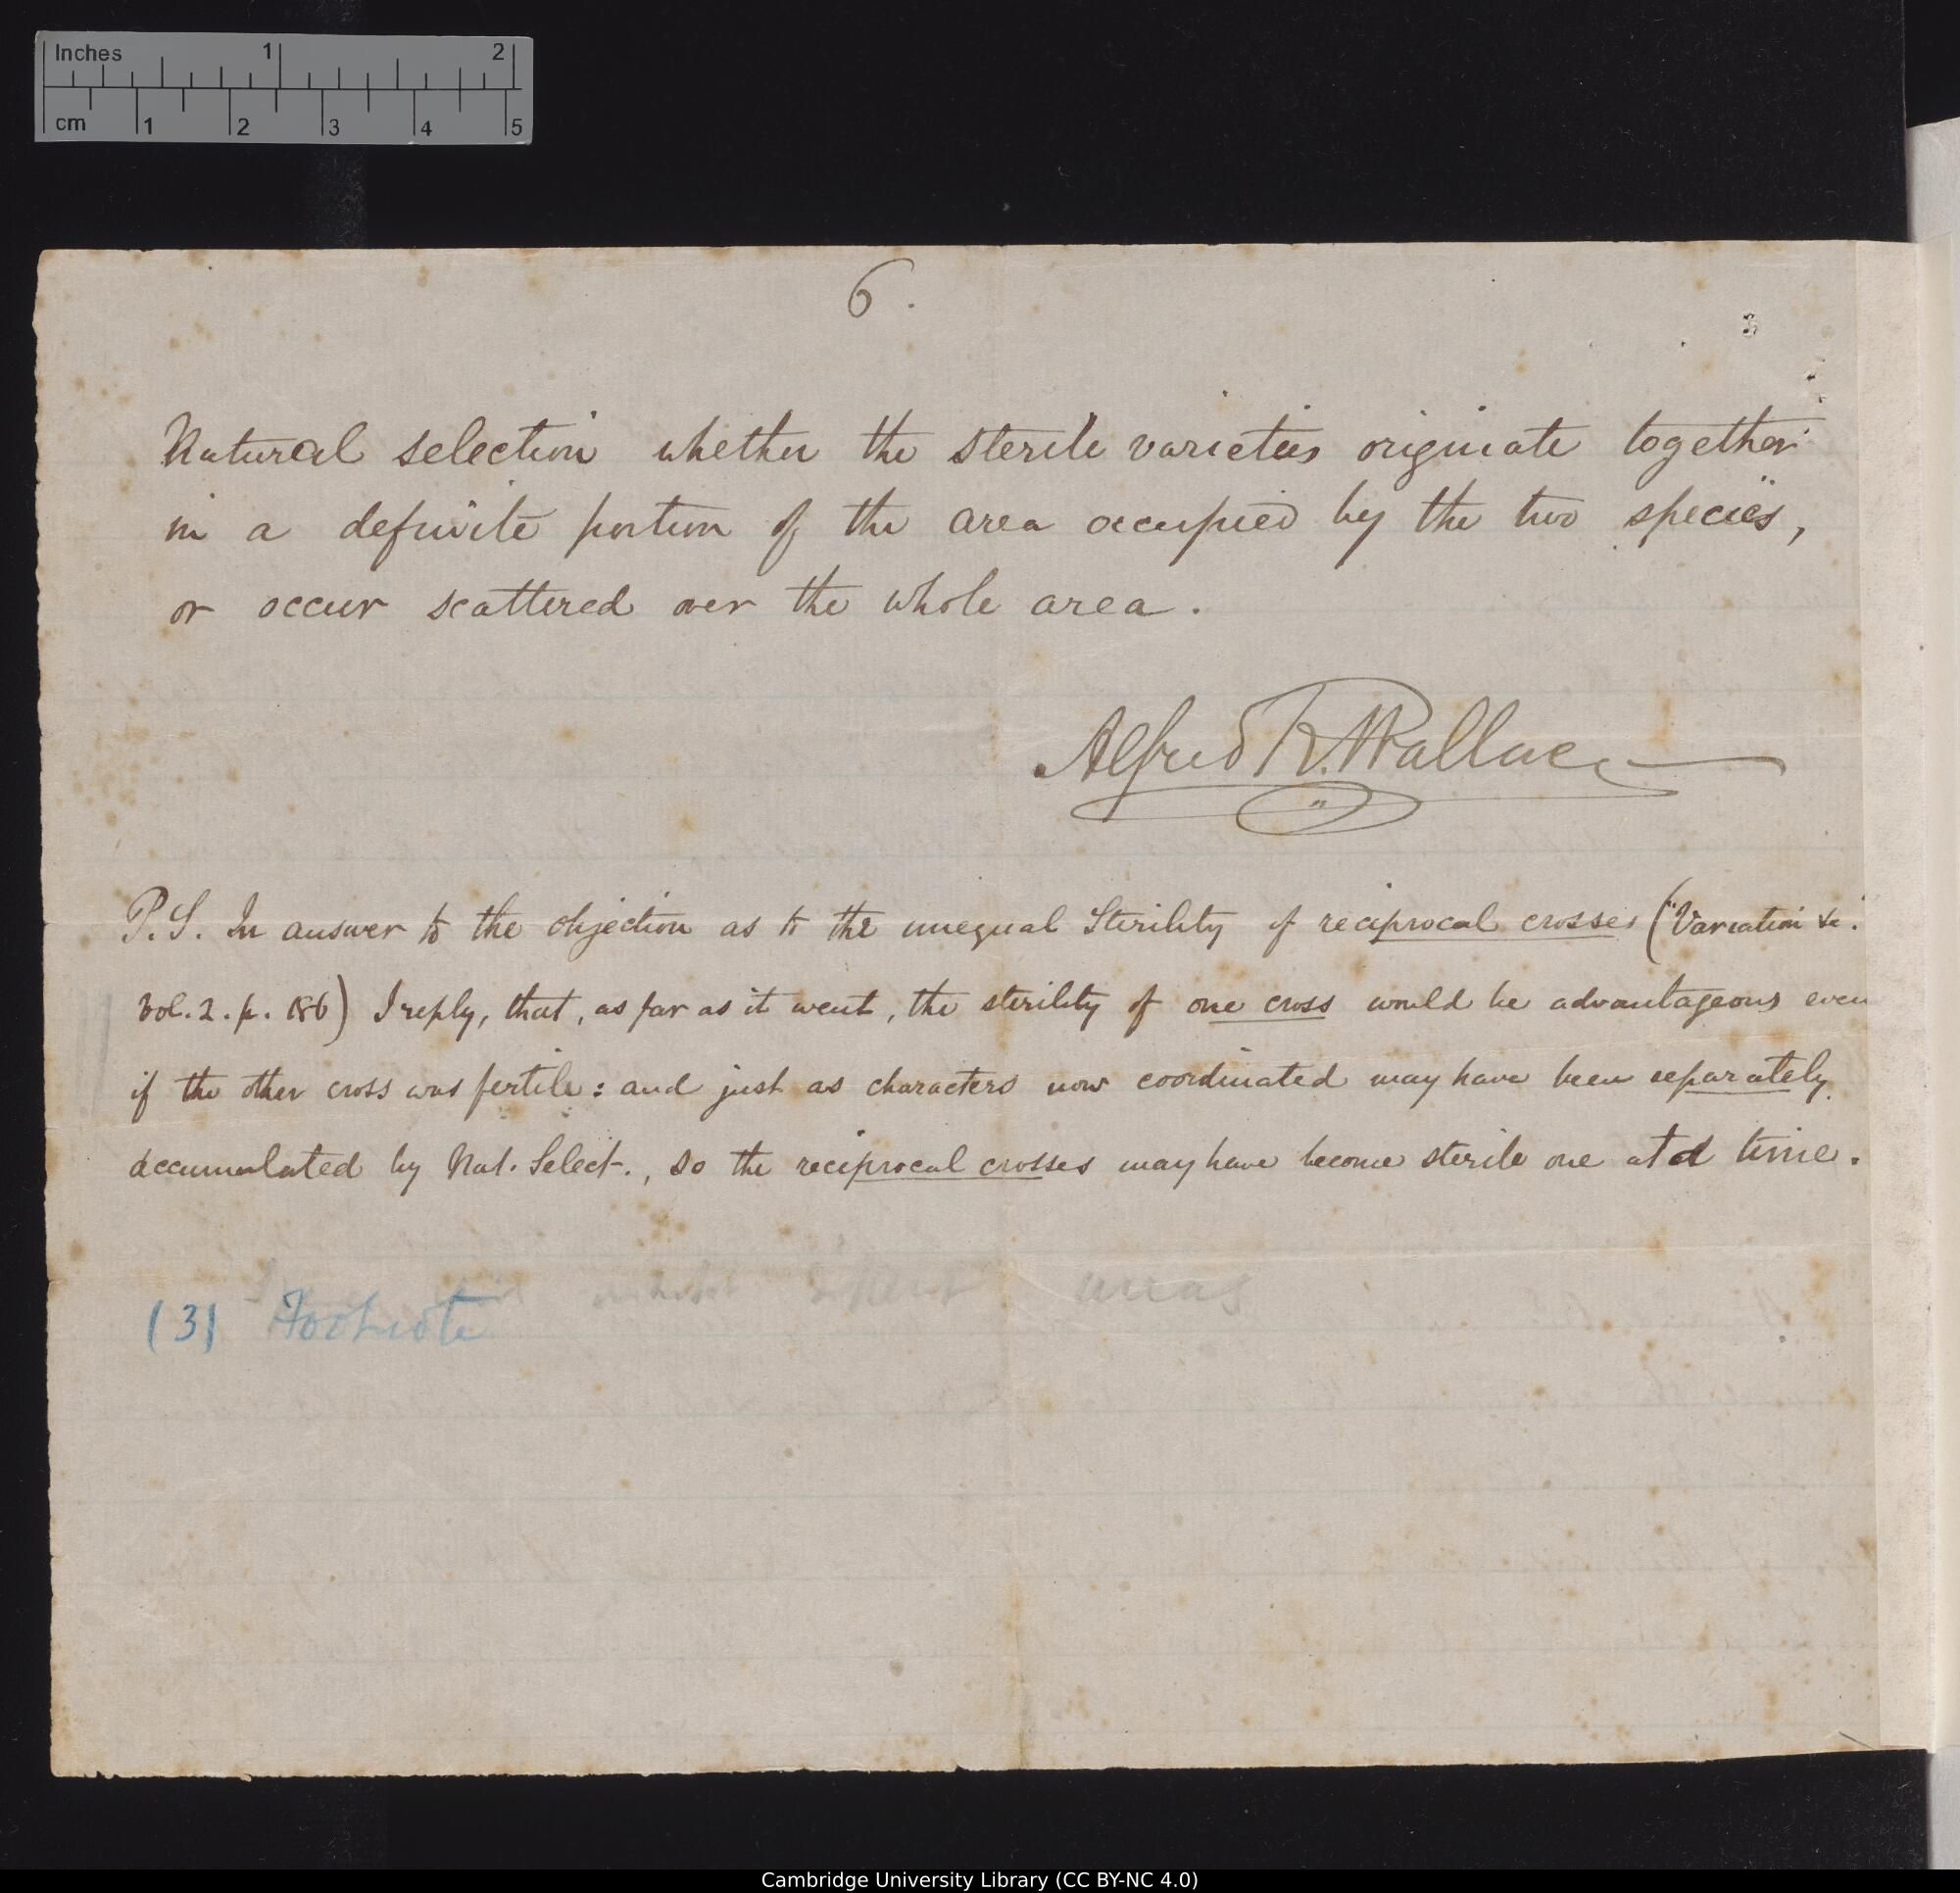 Inches 1 2
cm 1 2 3 4 5
6.
Natural selection whether the sterile varieties originate together
in a definite portion of the area occupied by the two species,
or occur scattered over the whole area.
Alfred R. Wallace
P.S. In answer to the objection as to the unequal sterility of reciprocal crosses ("Variation &c."
vol. 2. p. 186) I reply, that, as far as it went, the sterility of one cross would be advantageous even
if the other cross was fertile: and just as characters now coordinated may have been separately
accumulated by Nat. Select., so the reciprocal crosses may have become sterile one at a time.
(3) Footnote
Cambridge University Library (CC BY-NC 4.0)